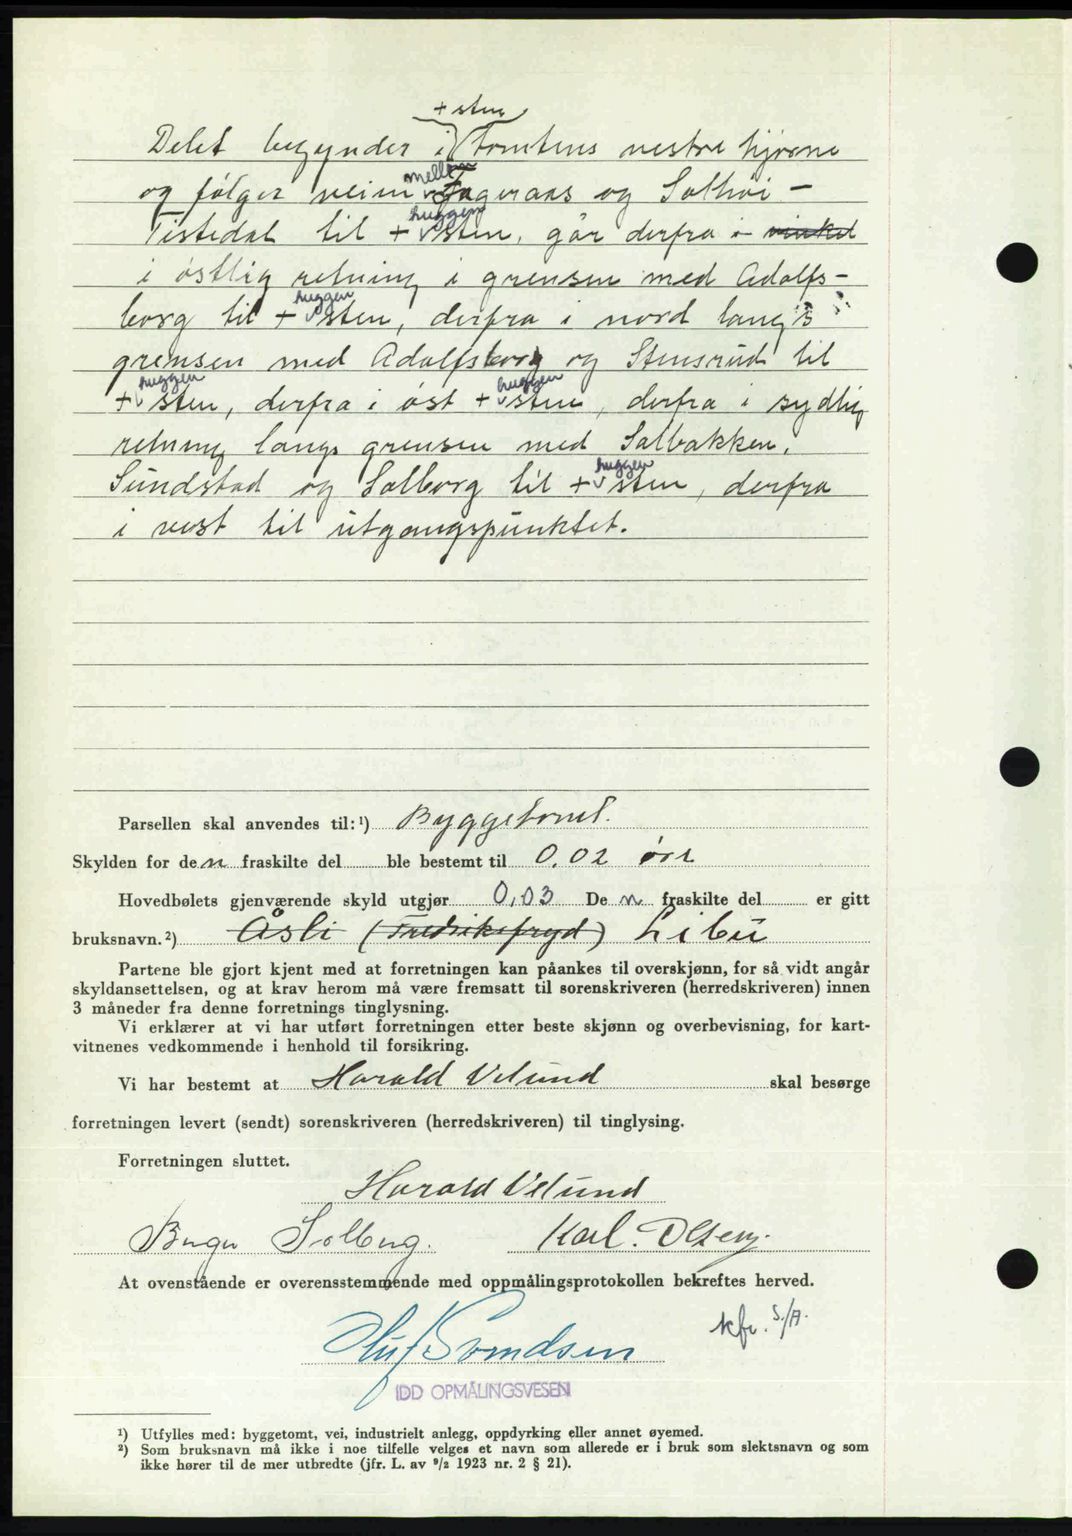 + sten
Delet begynder i tomtens vestre hjørne
og følger veien mellem Fageraas og Solhøi -
Tistedal til + huggen sten, går derfra i vinkel
i østlig retning i grensen med Adolfs-
borg til + huggen sten, derfra i nord langs
grensen med Adolfsborg og Stensrud til
+ huggen sten, derfra i øst + huggen sten, derfra i sydlig
retning langs grensen med Solbakken,
Sundstad og Solborg til + huggen sten, derfra
i vest til utgangspunktet.
Parsellen skal anvendes til:¹) Byggetomt.
Skylden for den fraskilte del ble bestemt til 0.02 øre
Hovedbølets gjenværende skyld utgjør 0,03 Den fraskilte del er gitt
bruksnavn.²) Åsli (Fredriksfryd) Libu
Partene ble gjort kjent med at forretningen kan påankes til overskjønn, for så vidt angår
skyldansettelsen, og at krav herom må være fremsatt til sorenskriveren (herredskriveren) innen
3 måneder fra denne forretnings tinglysning.
Vi erklærer at vi har utført forretningen etter beste skjønn og overbevisning, for kart-
vitnenes vedkommende i henhold til forsikring.
Vi har bestemt at Harald Velund skal besørge
forretningen levert (sendt) sorenskriveren (herredskriveren) til tinglysing.
Forretningen sluttet.
Harald Velund
Solberg. Karl. Olsen.
At ovenstående er overensstemmende med oppmålingsprotokollen bekreftes herved.
kfr. S/A.
Oluf Svendsen
IDD OPMÅLINGSVESEN
¹) Utfylles med: byggetomt, vei, industrielt anlegg, oppdyrking eller annet øyemed.
²) Som bruksnavn må ikke i noe tilfelle velges et navn som allerede er i bruk som slektsnavn og som
ikke hører til de mer utbredte (jfr. L. av ⁹/₂ 1923 nr. 2 § 21).